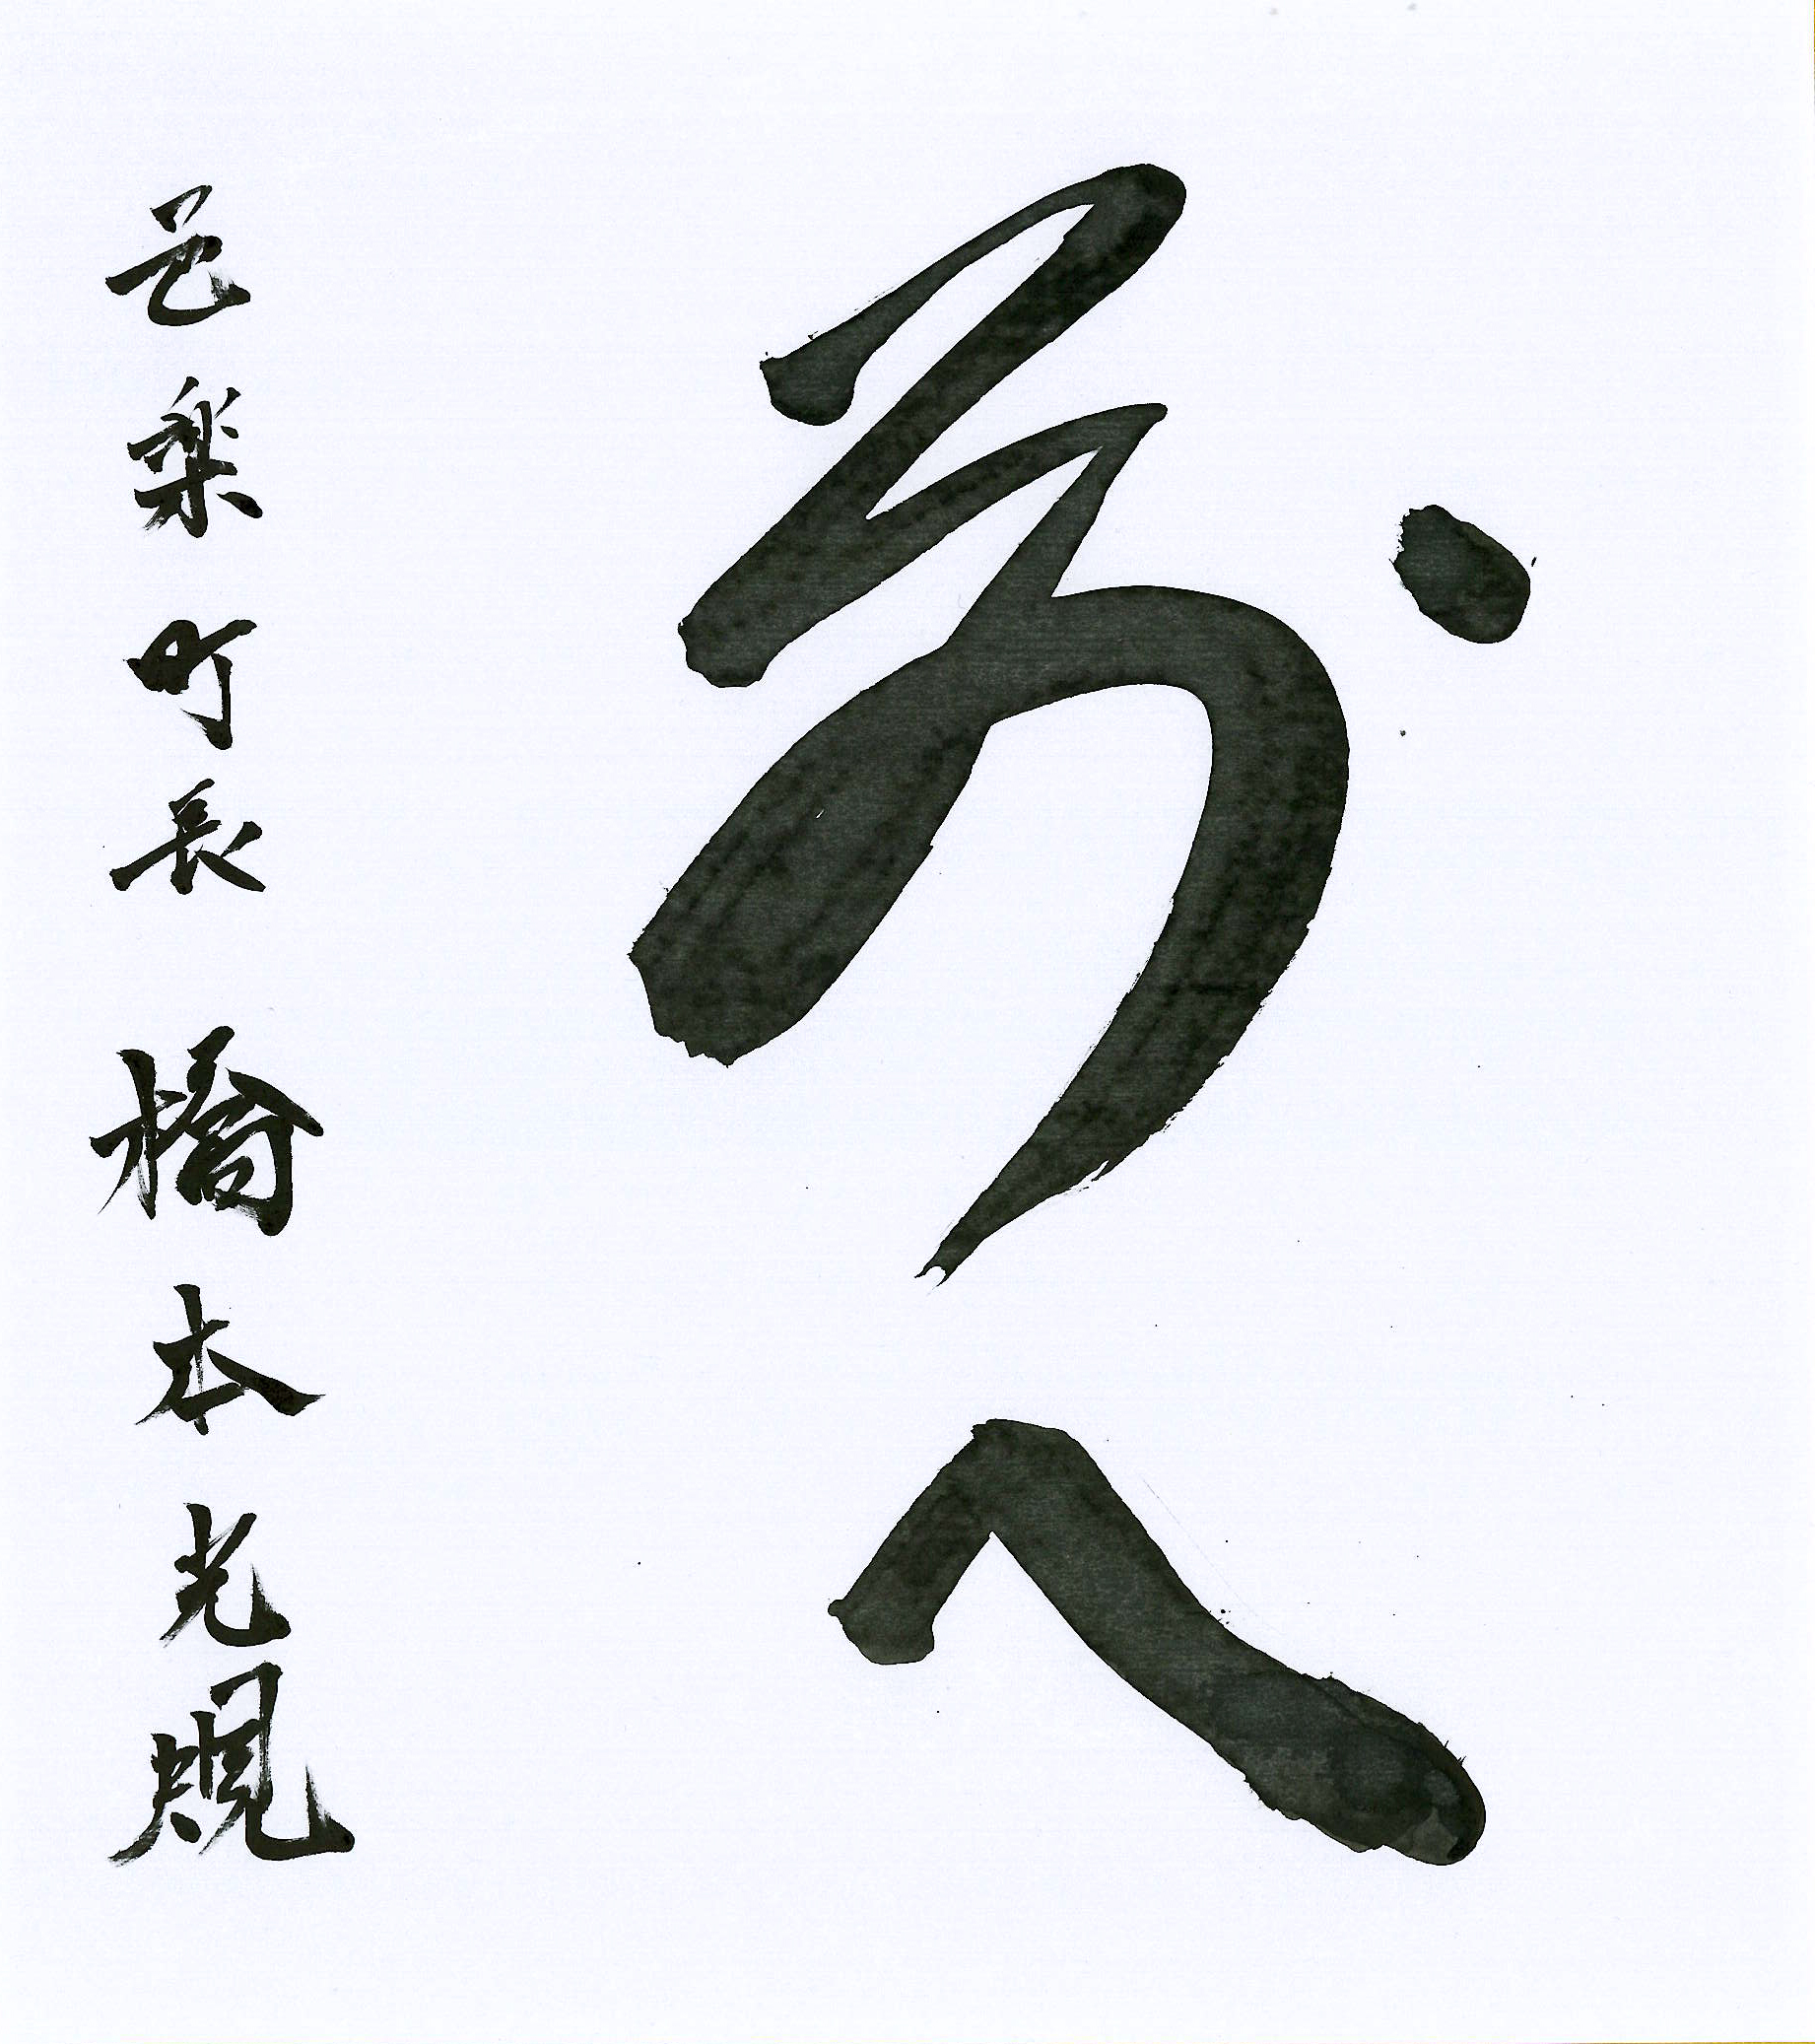 前へ
邑楽町長 橋本光規